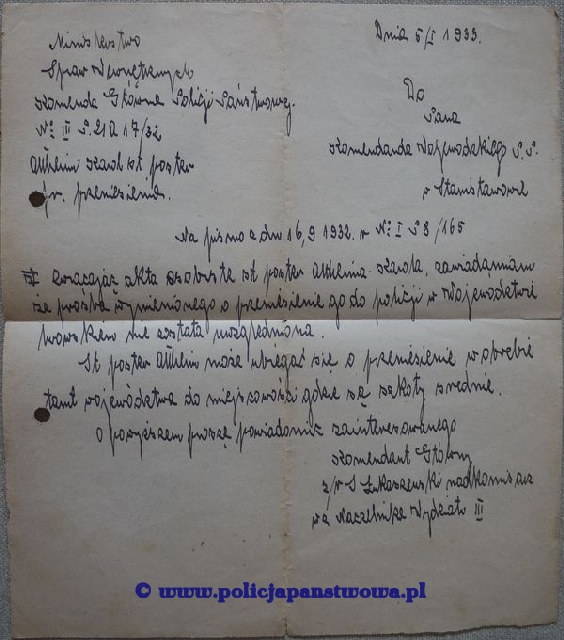 Ministerstwo
Spraw Wewnętrznych
Komenda Główna Policji Państwowej.
Nº III P. 210 17/32
Wilhelm Karol st poster
pr. przeniesienia.
Dnia 5/I 1933.
Do
Pana
Komendanta Wojewódzkiego P. P.
w Stanisławowie
Na pismo z dn 16, 9 1932. r Nº I P 8/165
Zwracając akta osobiste st poster Wilhelma Karola, zawiadamiam
że prośba wymienionego o przeniesienie go do policji w Wojewódstwie
lwowskiem nie została uwzględniona.
St poster Wilhelm może ubiegać się o przeniesienie w obrębie
tamt województwa do miejscowości gdzie są szkoły średnie.
O powyższem proszę powiadomić zainteresowanego
Komendant Główny
z/w J Łukaszewski nadkomisarz
wz Naczelnika Wydziału III
© www.policjapanstwowa.pl